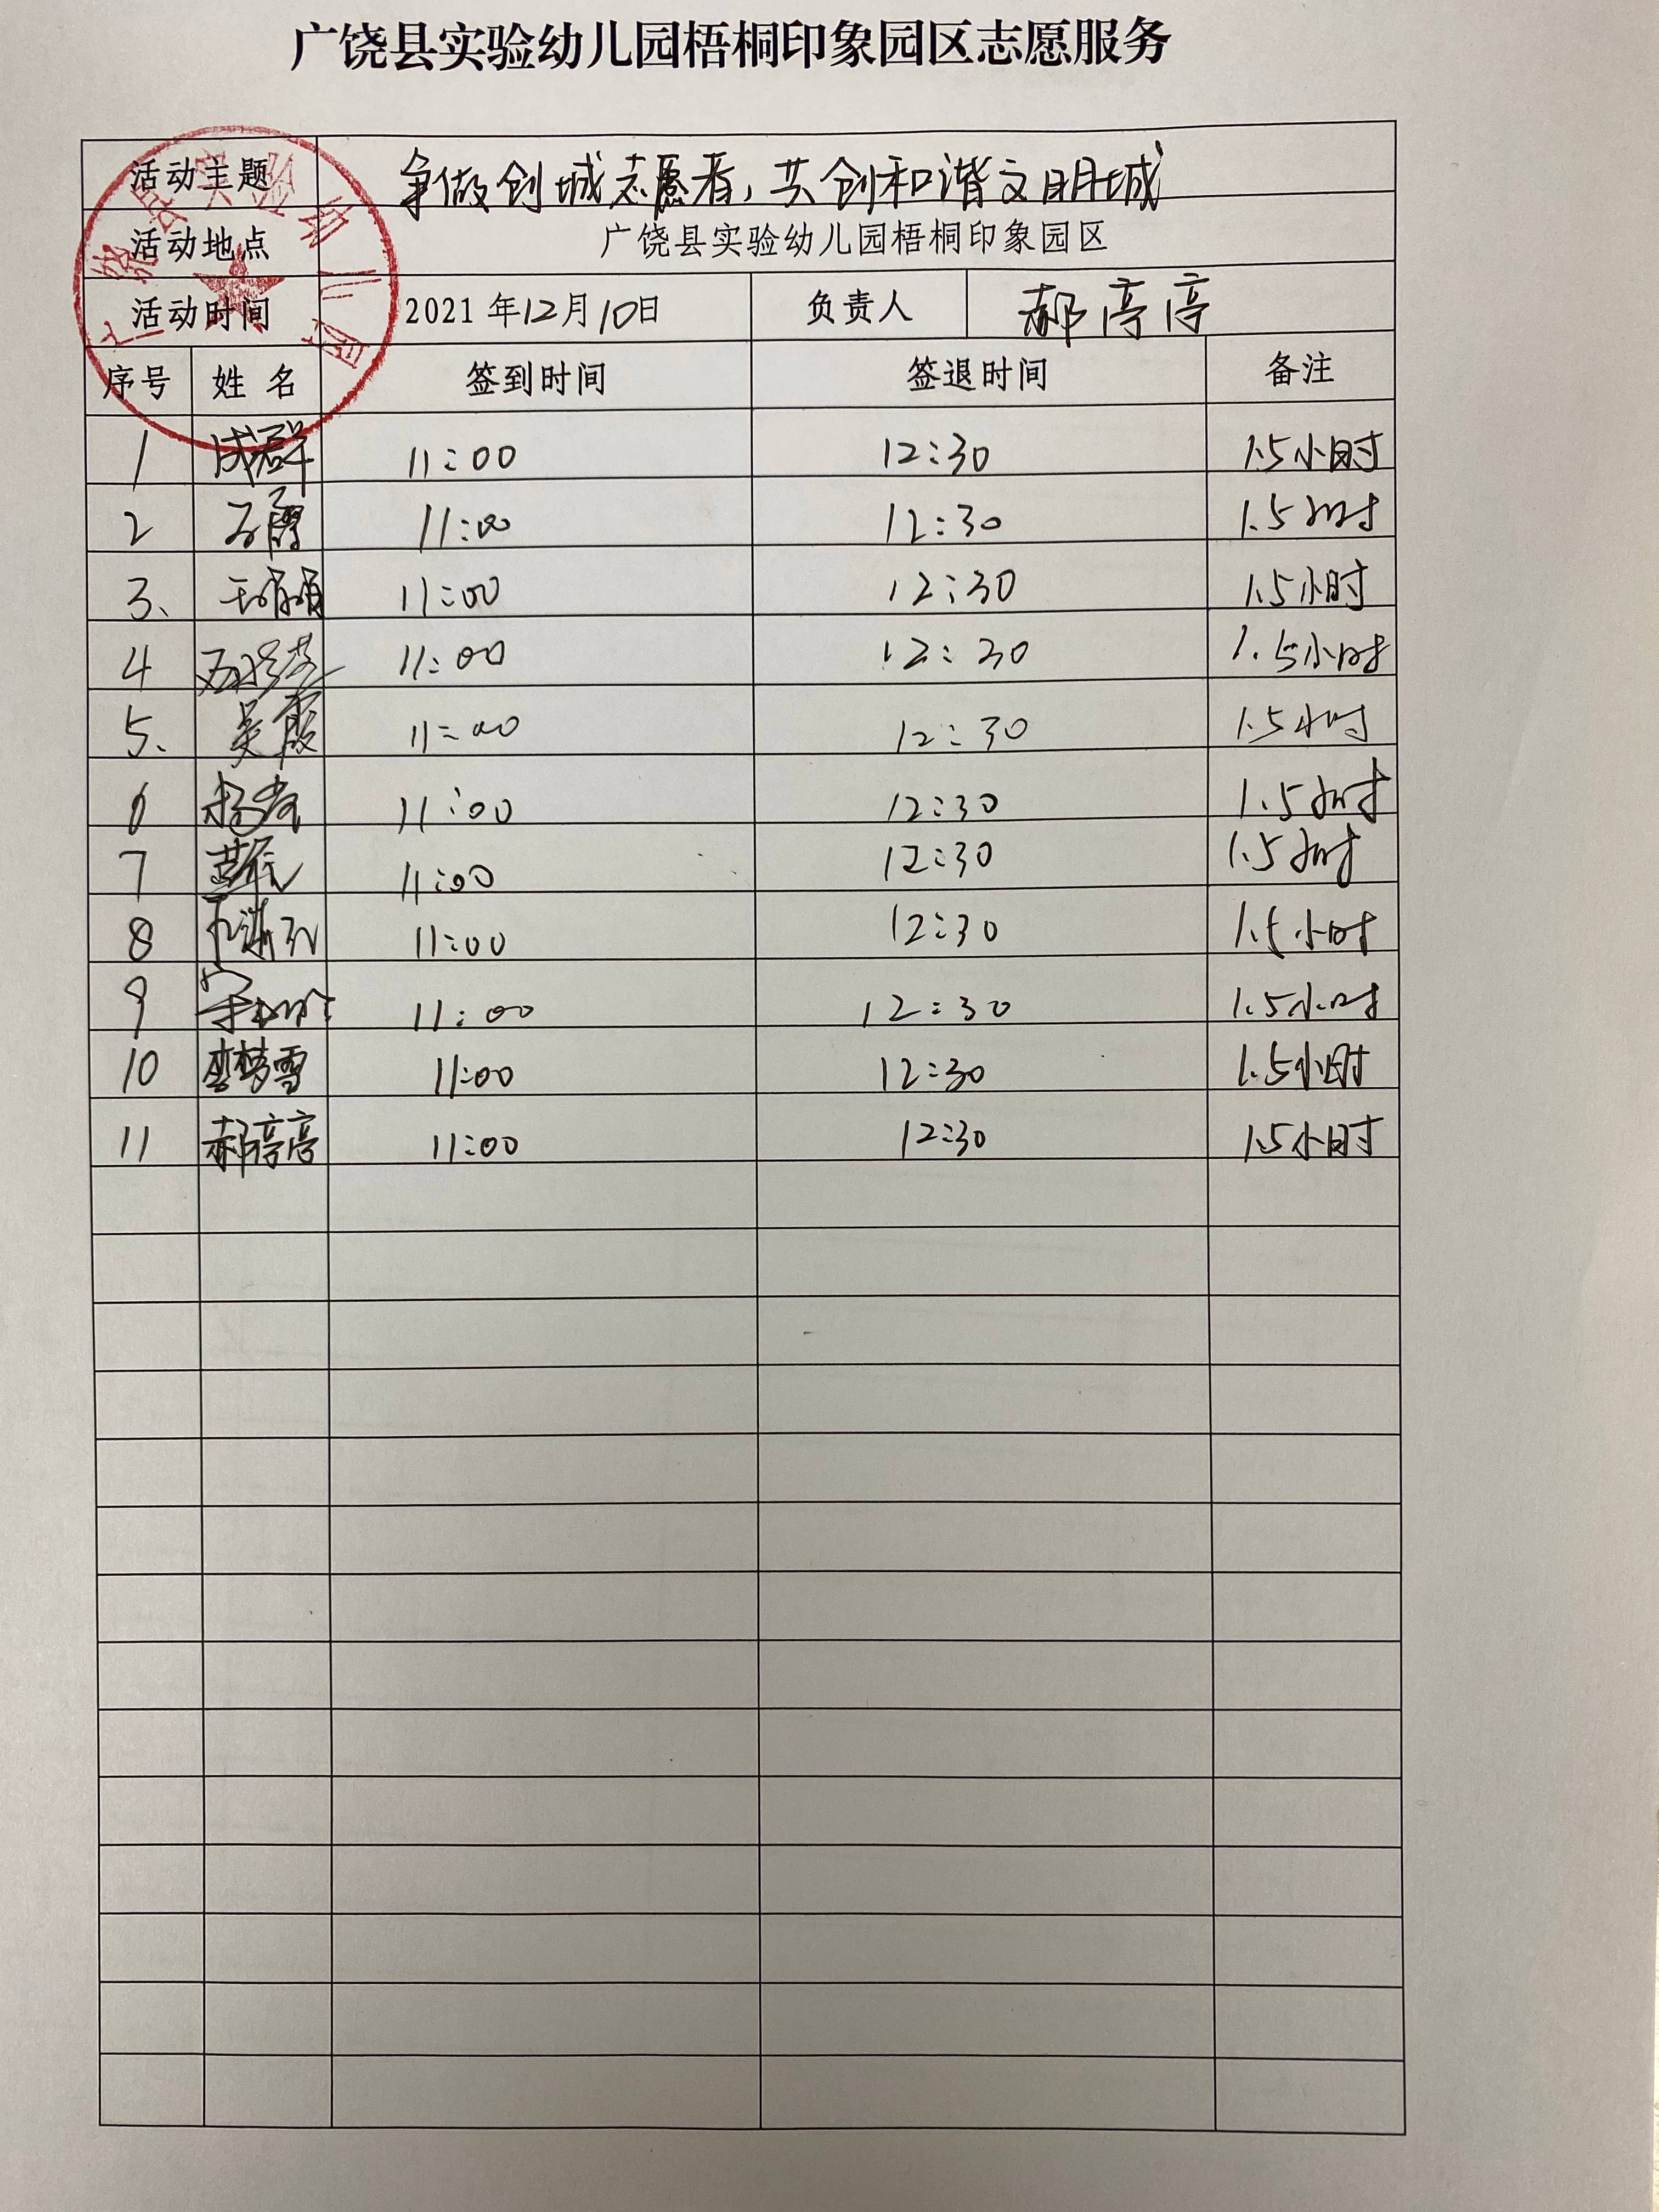 广饶县实验幼儿园梧桐印象园区志愿服务
活动主题 争做创城志愿者，共创和谐文明城
活动地点 广饶县实验幼儿园梧桐印象园区
活动时间 2021年12月10日 负责人 郝淳淳
广饶县实验幼儿园
序号 姓名 签到时间 签退时间 备注
1 成群 11:00 12:30 1.5小时
2 11:00 12:30 1.5小时
3、 11:00 12:30 1.5小时
4 11:00 12:30 1.5小时
5、 吴霞 11:00 12:30 1.5小时
6 11:00 12:30 1.5小时
7 11:00 12:30 1.5小时
8 11:00 12:30 1.5小时
9 11:00 12:30 1.5小时
10 李梦雪 11:00 12:30 1.5小时
11 郝淳淳 11:00 12:30 1.5小时